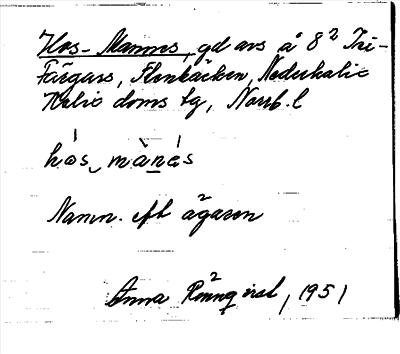 Hos-Manns, gd avs å 8² Tri-
Färgars, Flenbäcken, Nederkalix
Kalix doms lg, Norrb. l
hós mànás
Namn. eft ägaren
Anna Rönnqvist, 1951